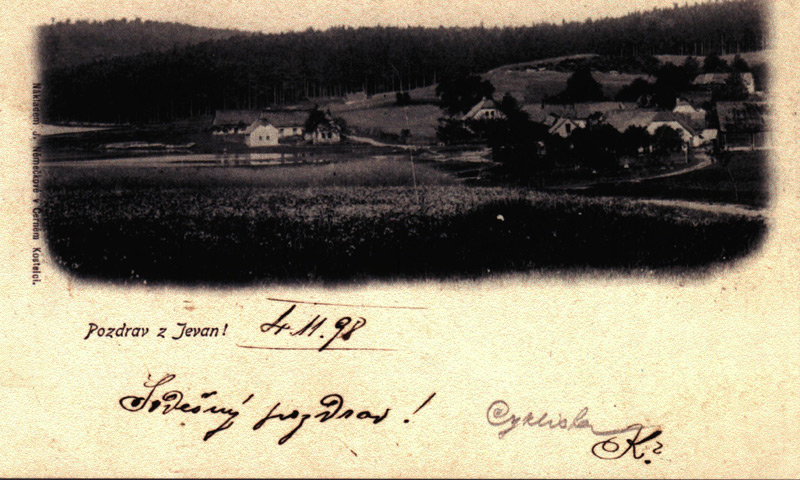 Nákladem J. Německého v Černém Kostelci.
Pozdrav z Jevan! 4. 11. 98
Srdečný pozdrav!
Cyklista
K.